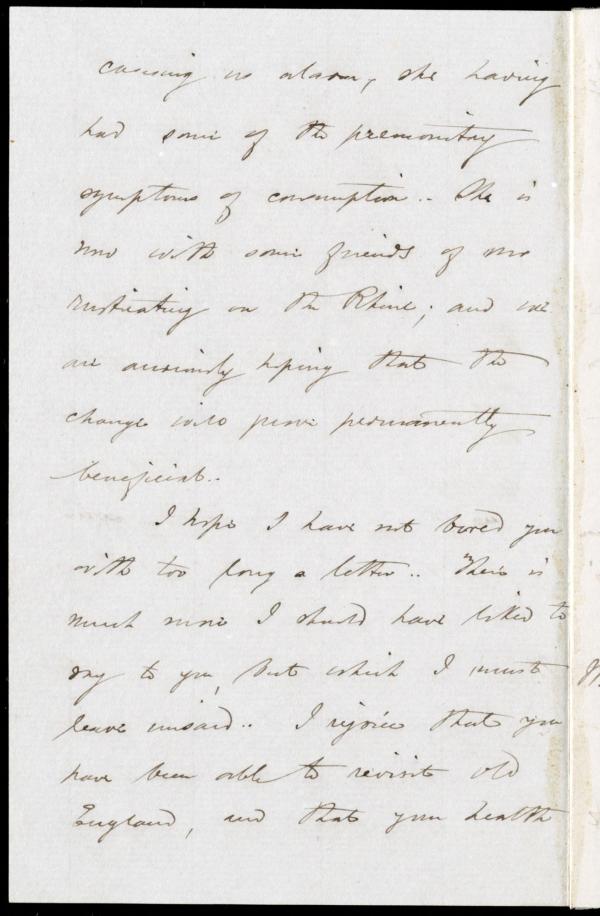 causing us alarm, she having
had some of the premonitory
symptoms of consumption.. She is
now with some friends of
rusticating on the Rhine; and we
are anxiously hoping that the
change will prove permanently
beneficial..
I hope I have not bored you
with too long a letter.. There is
much more I should have liked to
say to you, but which I must
leave unsaid.. I rejoice that you
have been able to revisit old
England, and that your health